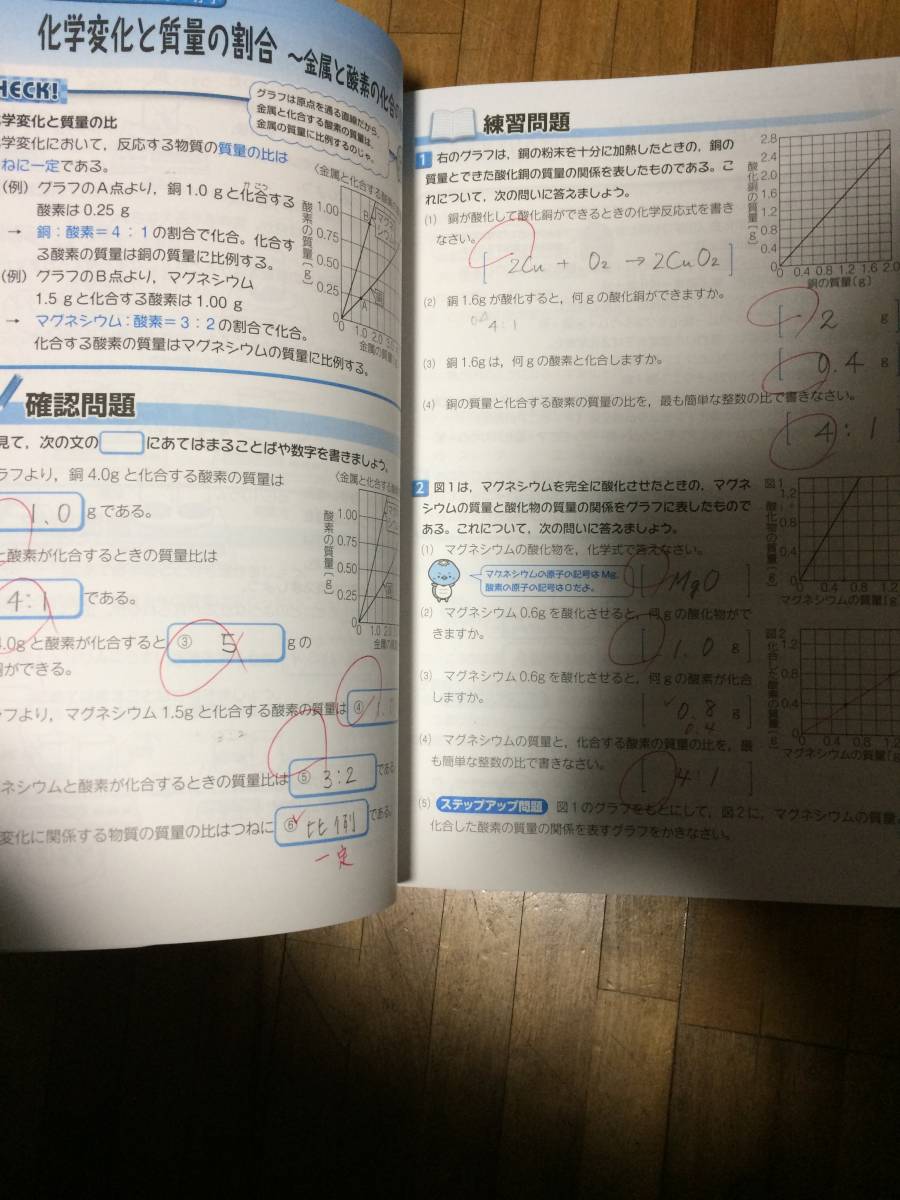 化学変化と質量の割合 ～金属と酸素の化合
HECK!
グラフは原点を通る直線だから，
金属と化合する酸素の質量は，
金属の質量に比例するのじゃ。
学変化と質量の比
学変化において，反応する物質の質量の比は
ねに一定である。
（例）グラフのA点より，銅1.0gと化合する
酸素は0.25g
→ 銅：酸素＝4：1の割合で化合。化合す
る酸素の質量は銅の質量に比例する。
（例）グラフのB点より，マグネシウム
1.5gと化合する酸素は1.00g
→ マグネシウム：酸素＝3：2の割合で化合。
化合する酸素の質量はマグネシウムの質量に比例する。
〈金属と化合する酸素
酸素の質量〔g〕
1.00
0.75
0.50
0.25
0
B
A
銅
0 1.0 2.0
金属の質量〔g
確認問題
見て，次の文の にあてはまることばや数字を書きましょう。
ラフより，銅4.0gと化合する酸素の質量は
1.0 gである。
と酸素が化合するときの質量比は
4:1 である。
4.0gと酸素が化合すると ③ 5 gの
ができる。
フより，マグネシウム1.5gと化合する酸素の質量は ④ 1.
ネシウムと酸素が化合するときの質量比は ⑤ 3:2 である
変化に関係する物質の質量の比はつねに ⑥ 比例 である。
一定
〈金属と化合する
酸素の質量〔g〕
1.00
0.75
0.50
0.25
0 1.0 2.0
練習問題
1 右のグラフは，銅の粉末を十分に加熱したときの，銅の
質量とできた酸化銅の質量の関係を表したものである。こ
れについて，次の問いに答えましょう。
(1) 銅が酸化して酸化銅ができるときの化学反応式を書き
なさい。
[ 2Cu + O2 → 2CuO2 ]
(2) 銅1.6gが酸化すると，何gの酸化銅ができますか。
4:1
[ 2 g
(3) 銅1.6gは，何gの酸素と化合しますか。
[ 0.4 g
(4) 銅の質量と化合する酸素の質量の比を，最も簡単な整数の比で書きなさい。
[ 4:1 ]
酸化銅の質量〔g〕
2.8
2.4
2.0
1.6
1.2
0.8
0.4
0
0 0.4 0.8 1.2 1.6 2.0
銅の質量〔g〕
2 図1は，マグネシウムを完全に酸化させたときの，マグネ
シウムの質量と酸化物の質量の関係をグラフに表したもので
ある。これについて，次の問いに答えましょう。
(1) マグネシウムの酸化物を，化学式で答えなさい。
マグネシウムの原子の記号はMg，
酸素の原子の記号はOだよ。
[ MgO ]
(2) マグネシウム0.6gを酸化させると，何gの酸化物がで
きますか。
[ 1.0 g ]
(3) マグネシウム0.6gを酸化させると，何gの酸素が化合
しますか。
[ 0.8 g ]
0.4
(4) マグネシウムの質量と，化合する酸素の質量の比を，最
も簡単な整数の比で書きなさい。
[ 4:1 ]
(5) ステップアップ問題 図1のグラフをもとにして，図2に，マグネシウムの質量と
化合した酸素の質量の関係を表すグラフをかきなさい。
図1
酸化物の質量〔g〕
1.2
0.8
0.4
0
0 0.4 0.8 1.2
マグネシウムの質量〔g
図2
化合した酸素の質量〔g〕
1.2
0.8
0.4
0
0 0.4 0.8 1.2
マグネシウムの質量〔g